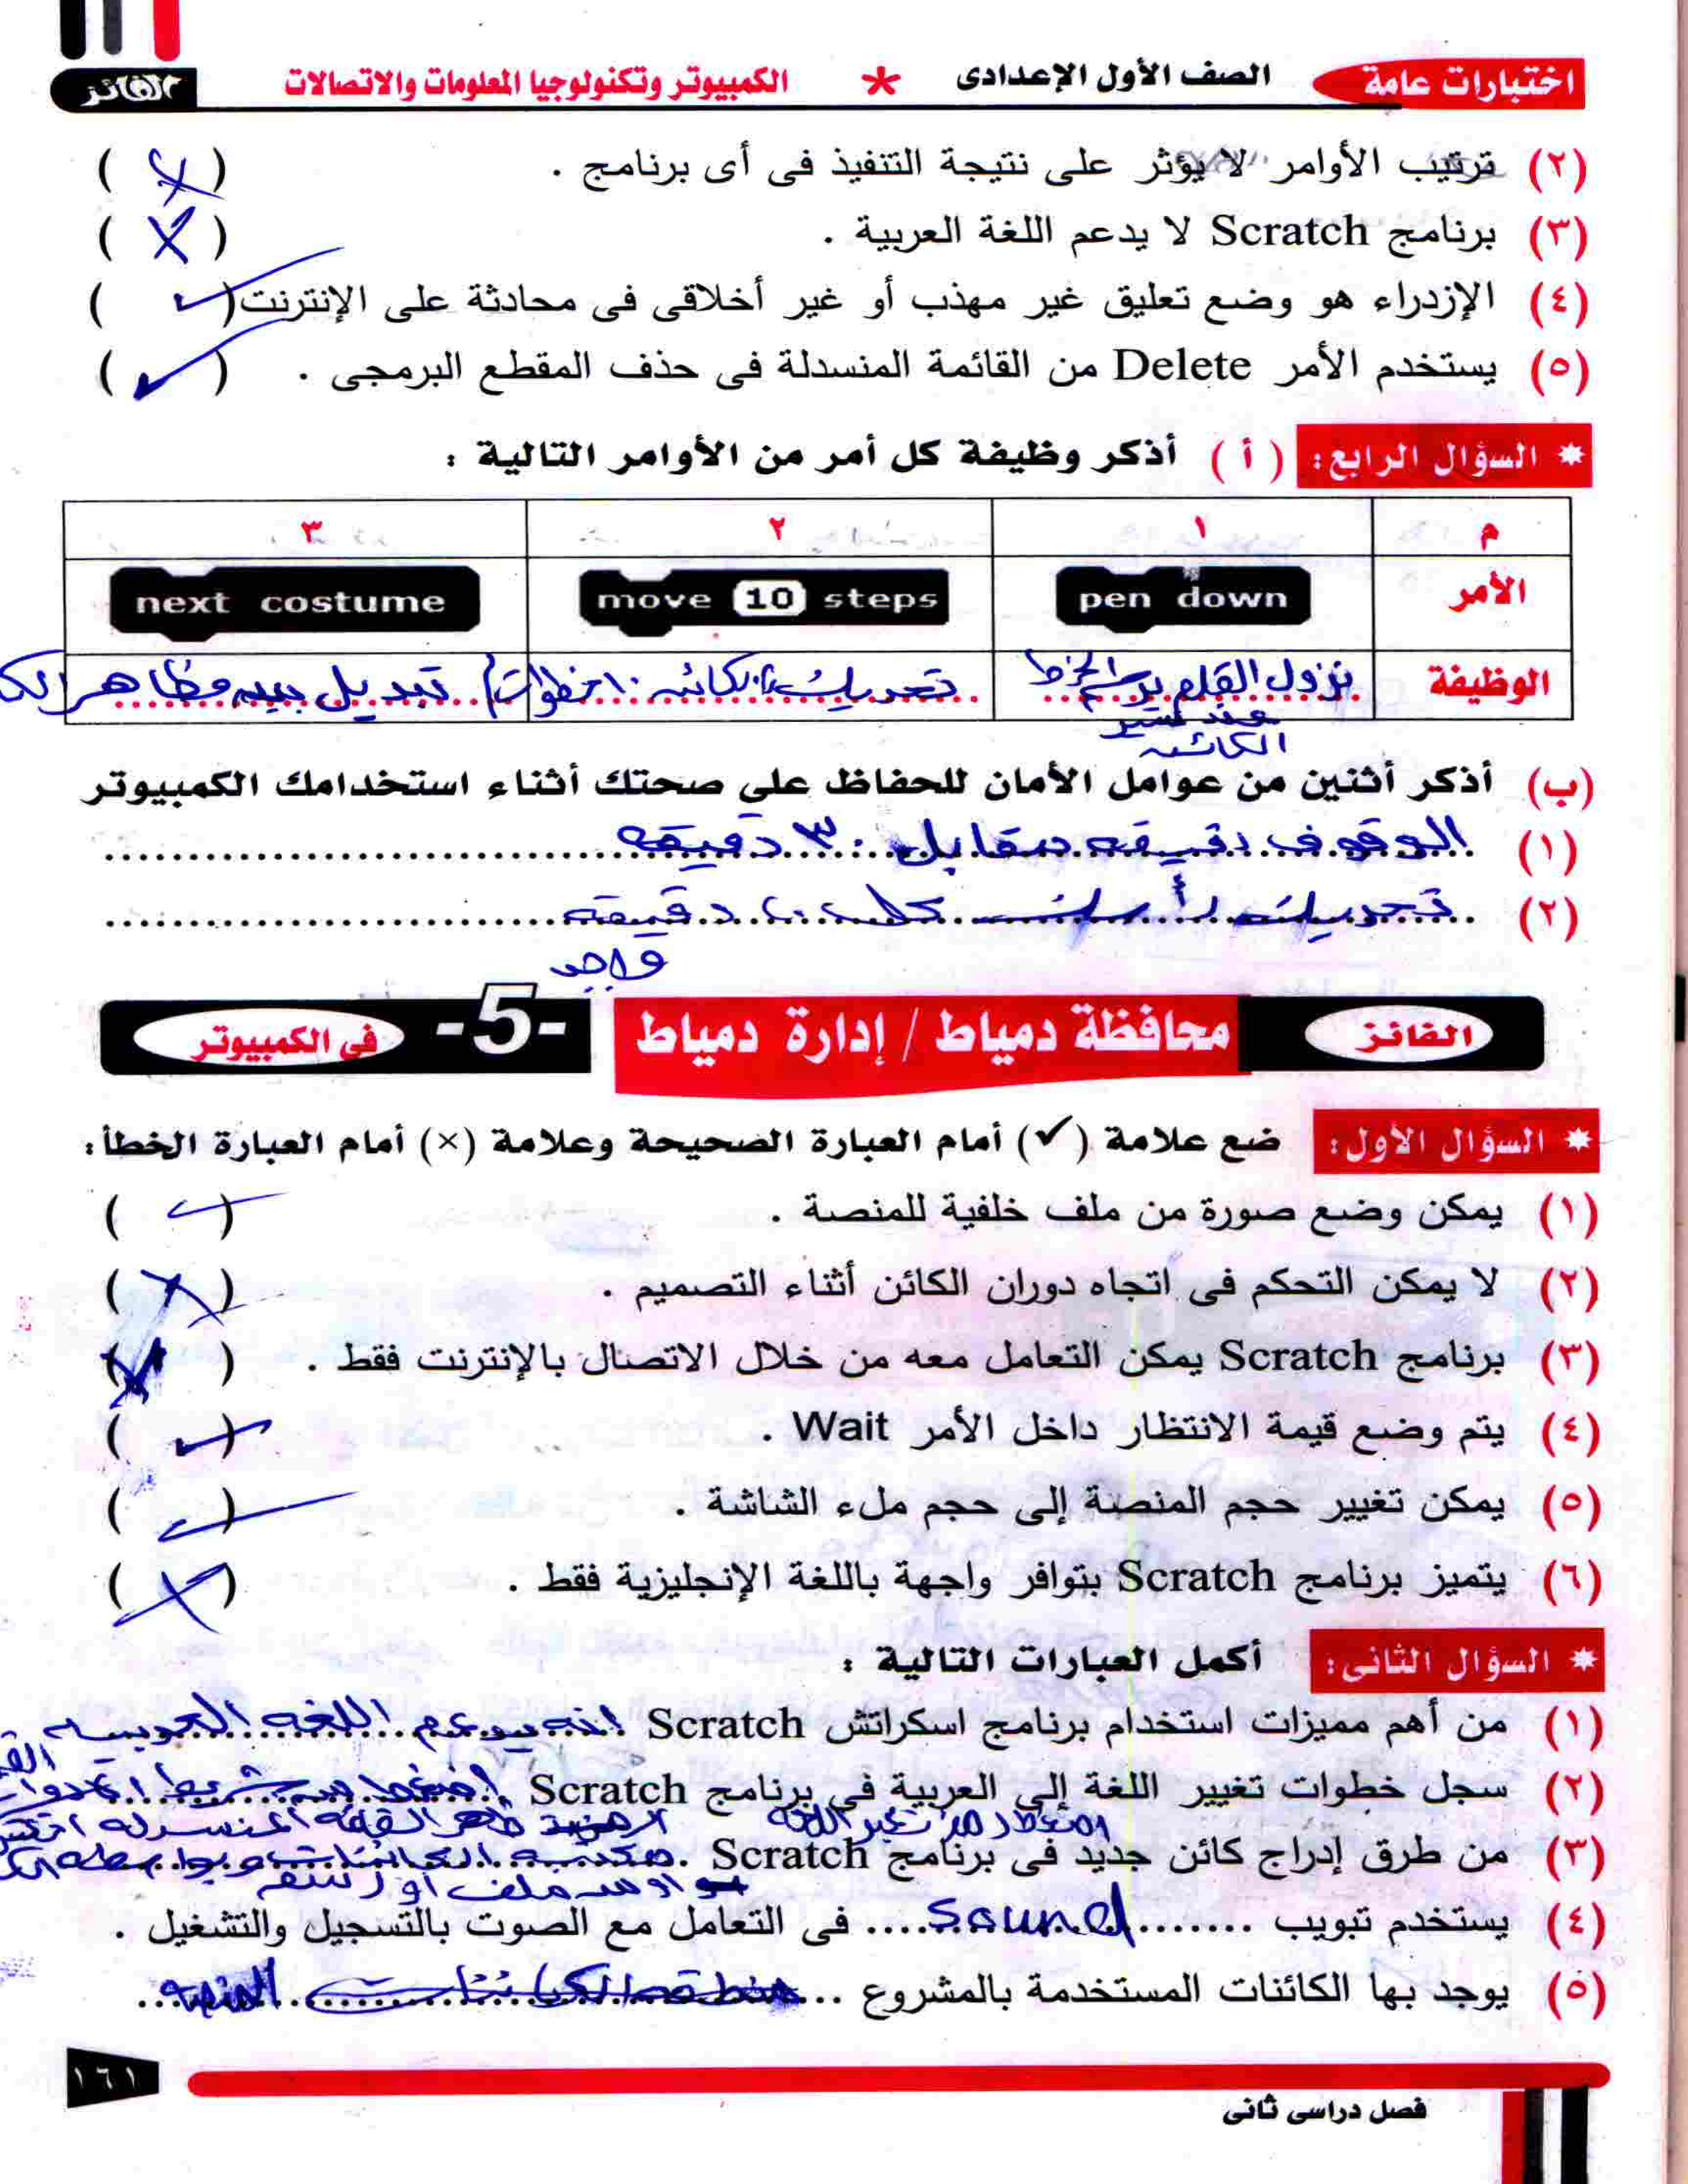 اختبارات عامة الصف الأول الإعدادى * الكمبيوتر وتكنولوجيا المعلومات والاتصالات الفائز
(٢) ترتيب الأوامر لا يؤثر على نتيجة التنفيذ فى أى برنامج . ( ✗ )
(٣) برنامج Scratch لا يدعم اللغة العربية . ( ✗ )
(٤) الإزدراء هو وضع تعليق غير مهذب أو غير أخلاقى فى محادثة على الإنترنت ( ✓ )
(٥) يستخدم الأمر Delete من القائمة المنسدلة فى حذف المقطع البرمجى . ( ✓ )
* السؤال الرابع: ( أ ) أذكر وظيفة كل أمر من الأوامر التالية :
م ١ ٢ ٣
الأمر pen down move 10 steps next costume
الوظيفة نزول القلم يرسم الخط تحريك الكائن ١٠ خطوات تبديل بين مظاهر
عند سير
الكائن
(ب) أذكر أثنين من عوامل الأمان للحفاظ على صحتك أثناء استخدامك الكمبيوتر
(١) الوقوف دقيقه مقابل ٣٠ دقيقه
(٢) تحريك رأسك كل ٢٠ دقيقه
واجب
الفائز محافظة دمياط / إدارة دمياط -5- فى الكمبيوتر
* السؤال الأول: ضع علامة (✓) أمام العبارة الصحيحة وعلامة (×) أمام العبارة الخطأ:
(١) يمكن وضع صورة من ملف خلفية للمنصة . ( ✓ )
(٢) لا يمكن التحكم فى اتجاه دوران الكائن أثناء التصميم . ( ✗ )
(٣) برنامج Scratch يمكن التعامل معه من خلال الاتصال بالإنترنت فقط . ( ✗ )
(٤) يتم وضع قيمة الانتظار داخل الأمر Wait . ( ✓ )
(٥) يمكن تغيير حجم المنصة إلى حجم ملء الشاشة . ( ✓ )
(٦) يتميز برنامج Scratch بتوافر واجهة باللغة الإنجليزية فقط . ( ✗ )
* السؤال الثانى: أكمل العبارات التالية :
(١) من أهم مميزات استخدام برنامج اسكراتش Scratch انه يدعم اللغه العربيه
(٢) سجل خطوات تغيير اللغة إلى العربية فى برنامج Scratch اضغط من شريط الادوات
القائمه المنسدله
(٣) من طرق إدراج كائن جديد فى برنامج Scratch مكتبه الكائنات
او من ملف او رسم
(٤) يستخدم تبويب ....... Sound .... فى التعامل مع الصوت بالتسجيل والتشغيل .
(٥) يوجد بها الكائنات المستخدمة بالمشروع .. منطقه الكائنات المنصه
١٦١
فصل دراسى ثانى